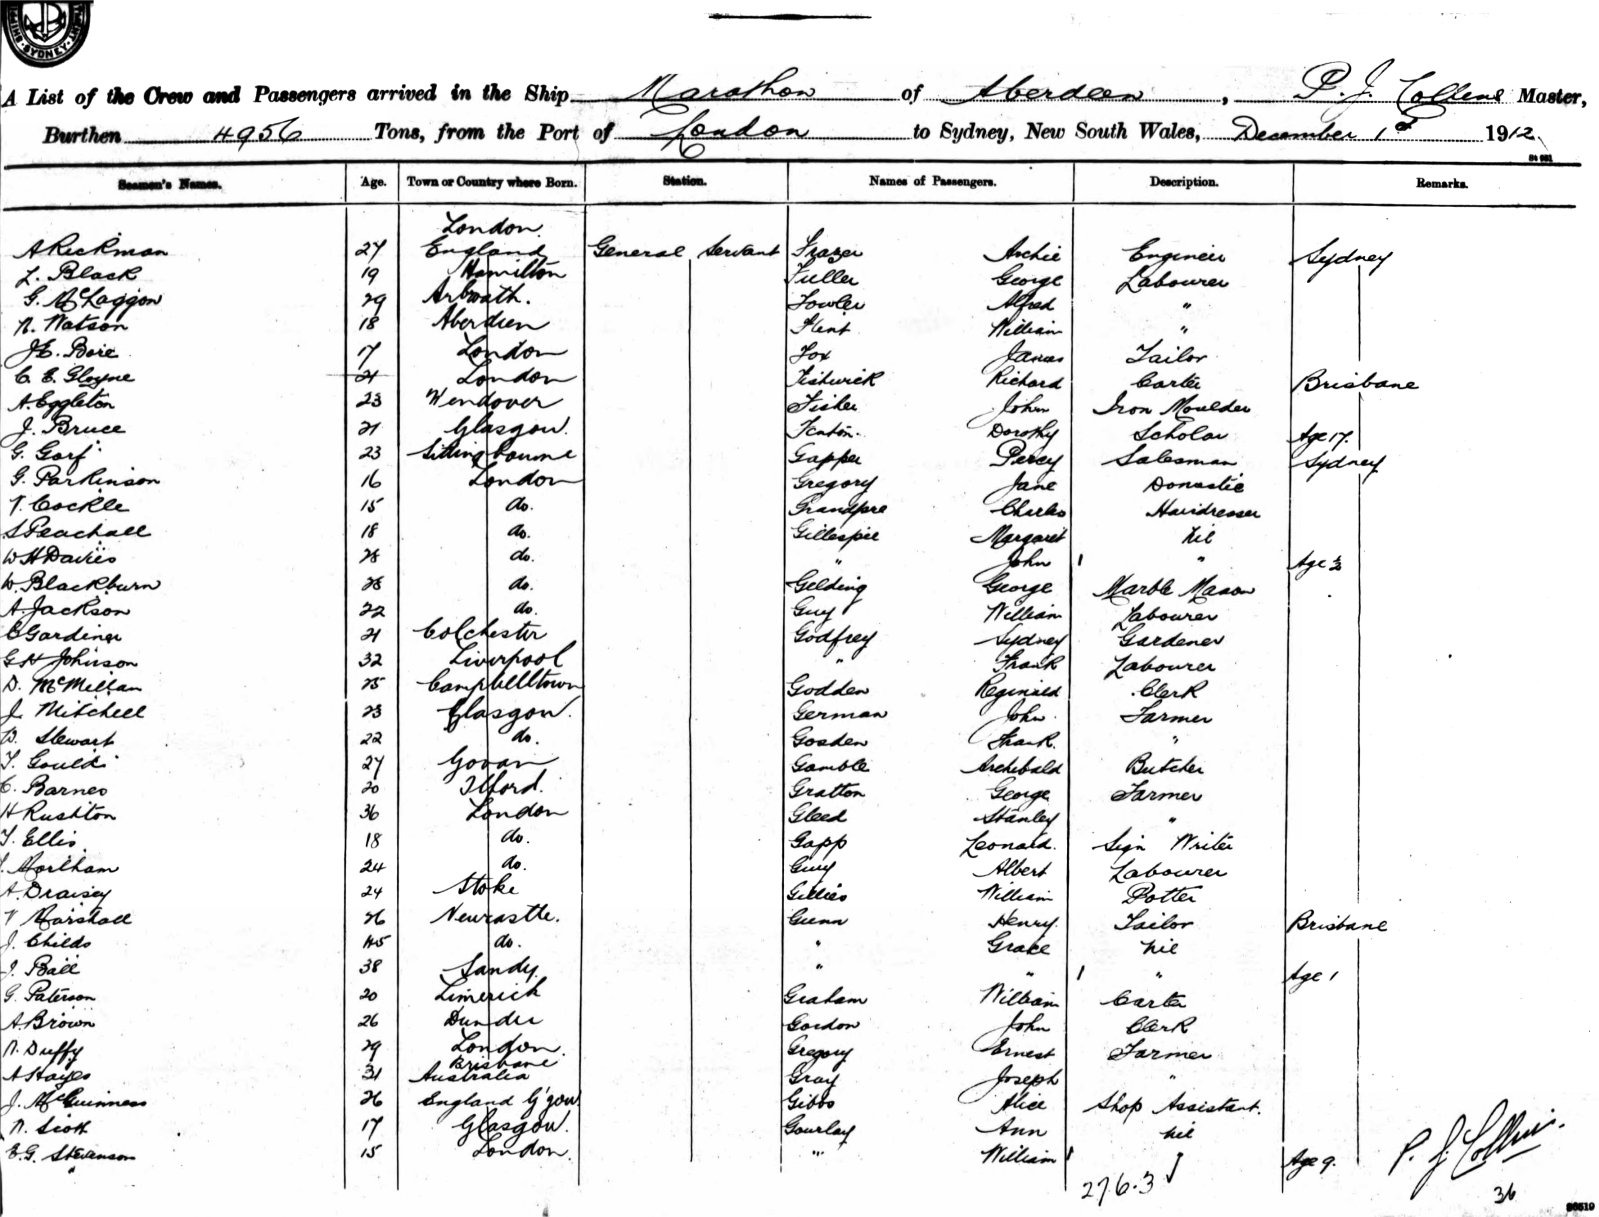 SYDNEY
A List of the Crew and Passengers arrived in the Ship Marathon of Aberdeen, P. J. Collins Master,
Burthen 4956 Tons, from the Port of London to Sydney, New South Wales, December 1st 1912
Seamen's Names. Age. Town or Country where Born. Station. Names of Passengers. Description. Remarks.
London
A Rickman 27 England General Servant Frazer Archie Engineer Sydney
L. Black 19 Hamilton Fuller George Labourer
G. McLaggon 29 Arbroath. Fowler Alfred "
N. Watson 18 Aberdeen Flint William "
J.E. Boie 17 London Fox James Tailor
C. E. Gloyne 21 London Fishwick Richard Carter Brisbane
A. Eggleton 23 Wendover Fisher John Iron Moulder
J. Bruce 21 Glasgow. Fenton. Dorothy Scholar Age 17.
G. Gorf 23 Sittingbourne Gapper Percy Salesman Sydney
G. Parkinson 16 London Gregory Jane Domestic
T. Cockle 15 do. Grandpre Charles Hairdresser
S Peachall 18 do. Gillespie Margaret Nil
W H Davies 28 do. " John 1 " Age ½
W. Blackburn 28 do. Gelding George Marble Mason
A. Jackson 22 do. Guy William Labourer
C Gardiner 21 Colchester Godfrey Sydney Gardener
G H Johnson 32 Liverpool " Frank Labourer
D. McMillan 25 Campbelltown Godden Reginald Clerk
J. Mitchell 23 Glasgow. German John Farmer
D. Stewart 22 do. Gosden Frank. "
T. Gould 27 Govan Gamble Archibald Butcher
C. Barnes 20 Ilford. Gratton George Farmer
H Rushton 36 London Gleed Stanley "
T. Ellis 18 do. Gapp Leonard. Sign Writer
Morlham 24 do. Guy Albert Labourer
A. Draisey 24 Stoke Gillies William Potter
V Marshall 26 Newcastle. Gunn Henry. Tailor Brisbane
J. Childs 45 do. " Grace Nil
J. Ball 38 Sandy. " " 1 " Age 1
G. Paterson 20 Limerick Graham William Carter
A Brown 26 Dundee Gordon John Clerk
N. Duffy 29 London. Gregory Ernest Farmer
Brisbane
A Hayes 31 Australia Gray Joseph "
J. McGuinness 26 England G'gow. Gibbs Alice Shop Assistant.
N. Scott 17 Glasgow. Gourlay Ann Nil
E.G. Stevenson 15 London. " William 1 Age 9.
P. J. Collins.
276.3
36